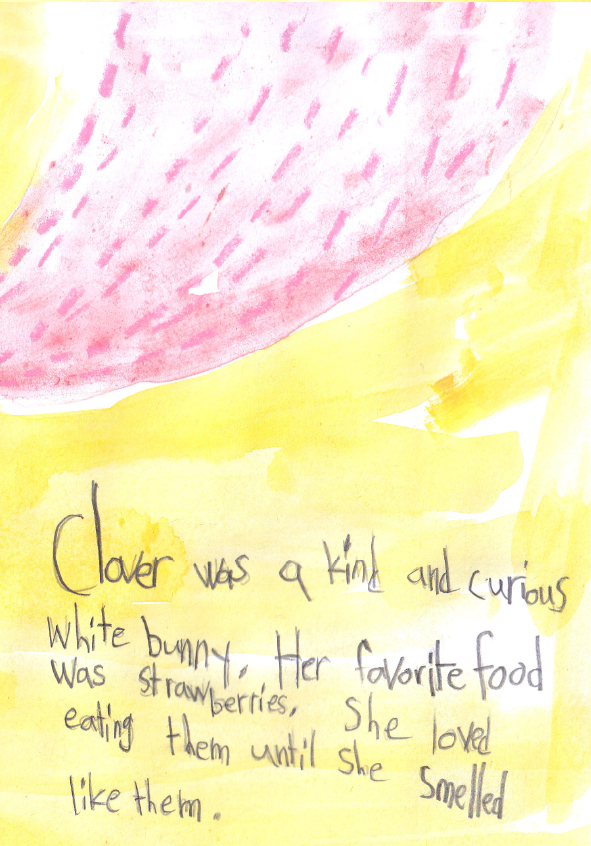 Clover was a kind and curious
white bunny. Her favorite food
was strawberries. She loved
eating them until she smelled
like them.